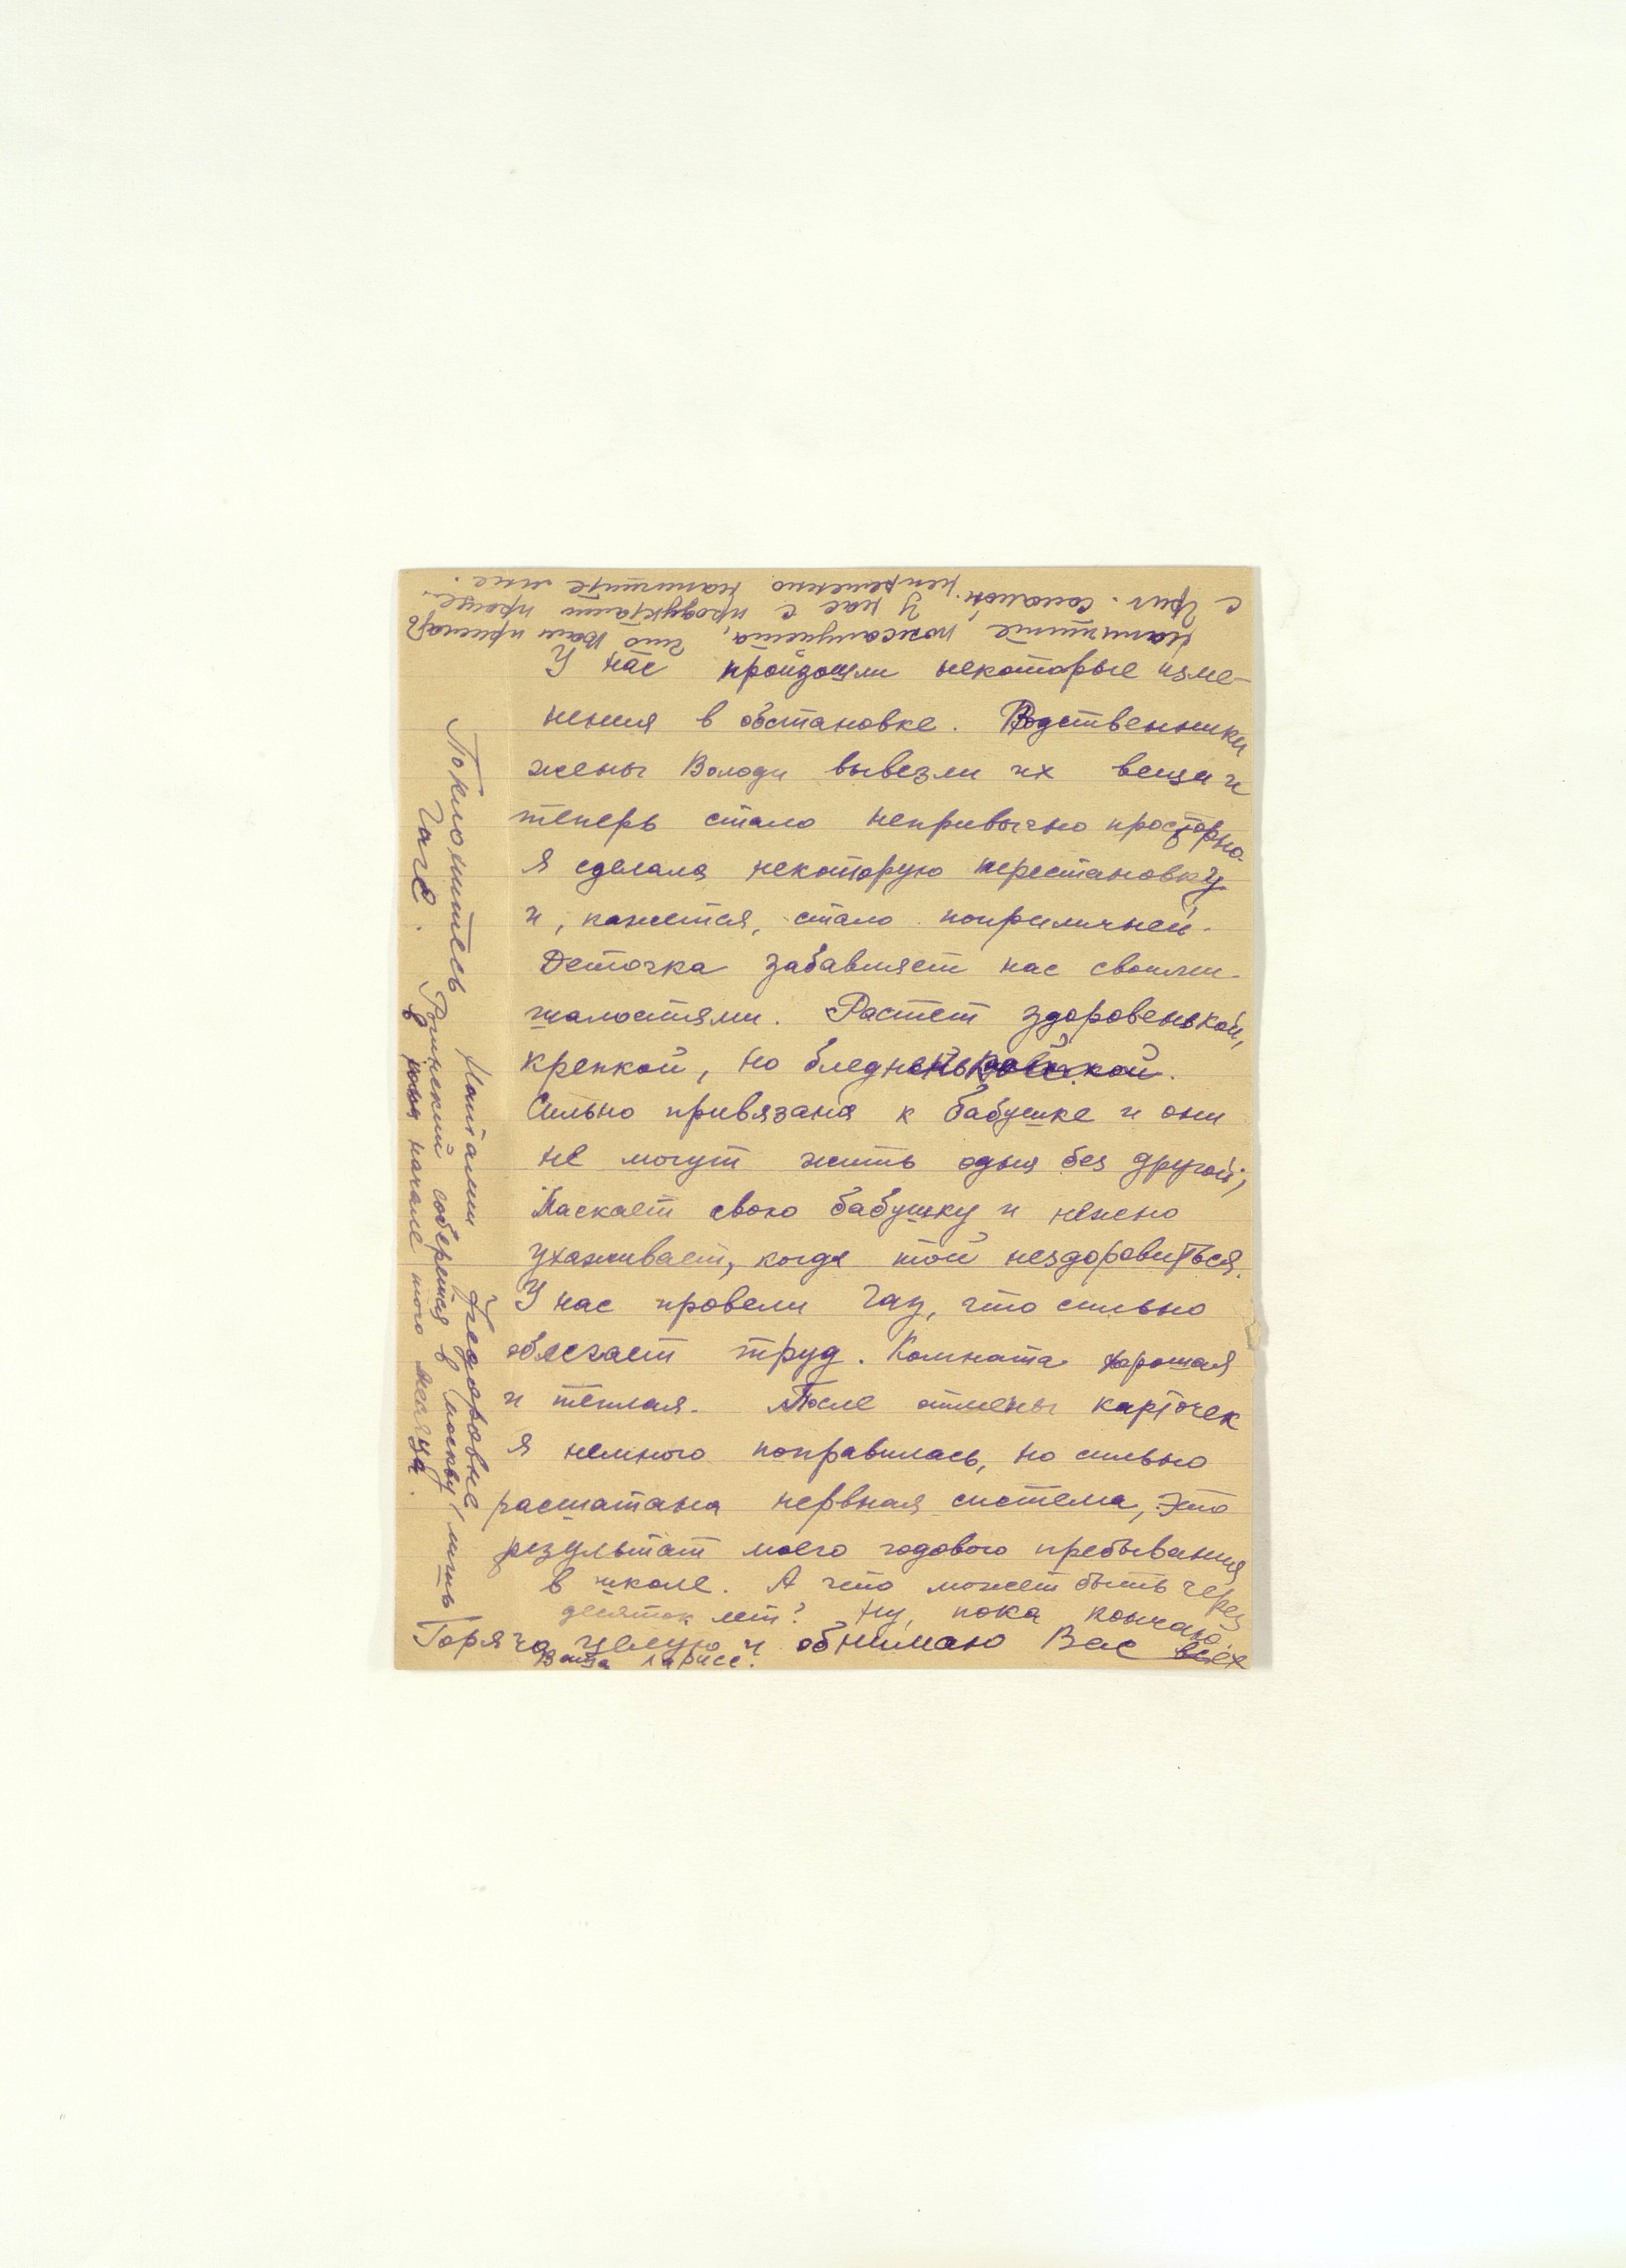 У нас пройзошли некоторые изме-
нения в обстановке. Родственники
жены Володи вывезли их вещи и
теперь стало непривычно просторно.
Я сделала некоторую перестановку
и, кажется, стало поприличней.
Деточка забавляет нас своими
шалостями. Растет здоровенькой,
крепкой, но бледненькой.
Сильно привязана к бабушке и они
не могут жить одна без другой,
Ласкает свою бабушку и нежно
ухаживает, когда той нездоровиться.
У нас провели газ, что сильно
облегчает труд. Комната хорошая
и теплая. После отмены карточек
я немного поправилась, но сильно
расшатана нервная система, это
результат моего годового пребывания
в школе. А что может быть через
десяток лет? Ну, пока кончаю.
Горячо целую и обнимаю Вас всех
Ваша Ларисс.
Поклонитесь Наталии Федоровне
Гаге. Рогинский соберется в Москву лишь
в начале того месяца.
Напишите, пожалуйста, что Вам прислать
с Григ. Соломон. У нас с продуктами проще.
непременно напишите мне.